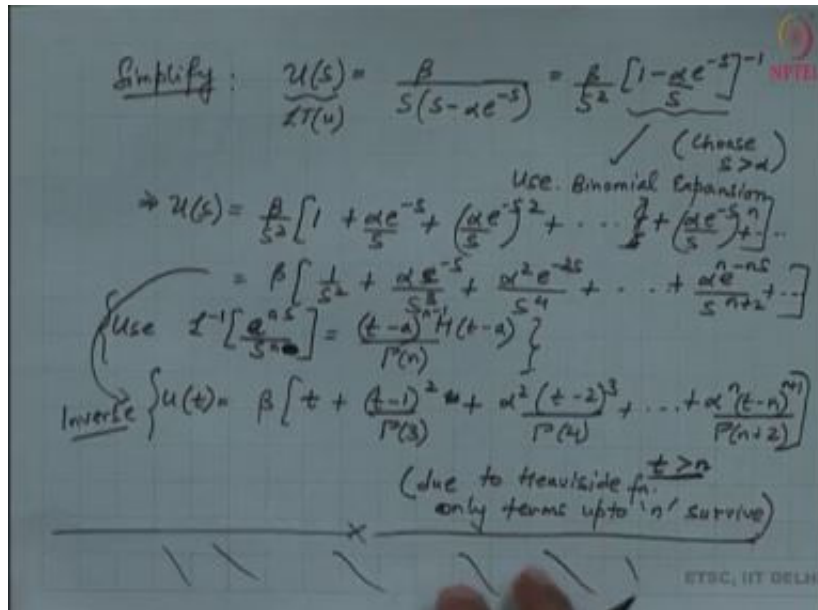 Simplify: U(s) = β / s(s - αe^-s) = β/s² [1 - αe^-s/s]^-1
NPTEL
LT(u)
(Choose s > α)
Use Binomial Expansion
⇒ U(s) = β/s² [1 + αe^-s/s + (αe^-s/s)^2 + ... + (αe^-s/s)^n + ...]
= β [1/s² + αe^-s/s³ + α²e^-2s/s⁴ + ... + α^n e^-ns/s^n+2 + ...]
{Use L^-1[e^as/s^n] = (t-a)^n-1 H(t-a)/Γ(n)}
Inverse {u(t) = β [t + (t-1)²/Γ(3) + α²(t-2)³/Γ(4) + ... + α^n(t-n)^n+1/Γ(n+2)]
t > n
(due to Heaviside fn.
only terms upto 'n' survive)
ETSC, IIT DELH